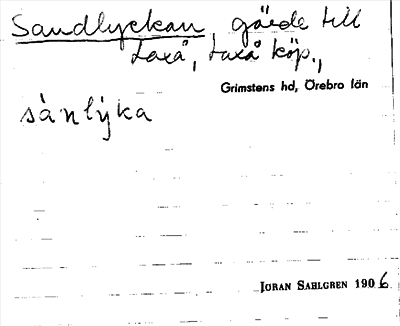 Sandlyckan, gärde till
Laxå, Laxå köp.,
Grimstens hd, Örebro län
sánlýka
JÖRAN SAHLGREN 1906